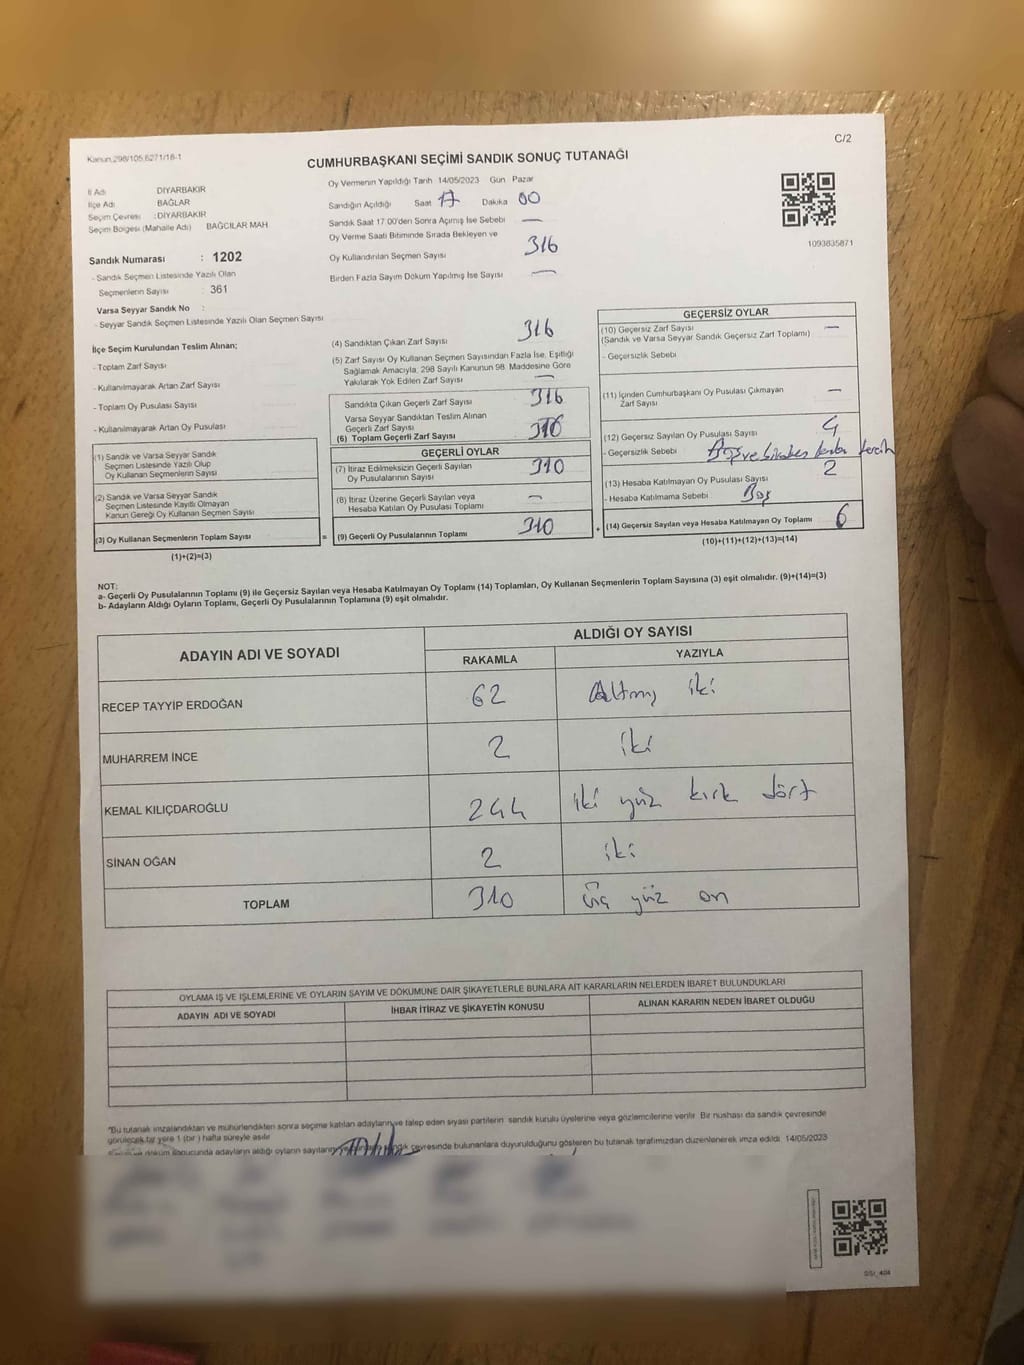 C/2
Kanun,298/105,6271/18-1
CUMHURBAŞKANI SEÇİMİ SANDIK SONUÇ TUTANAĞI
İl Adı DİYARBAKIR
İlçe Adı BAĞLAR
Seçim Çevresi : DİYARBAKIR
Seçim Bölgesi (Mahalle Adı) BAĞCILAR MAH
Oy Vermenin Yapıldığı Tarih 14/05/2023 Gün Pazar
Sandığın Açıldığı Saat 17 Dakika 00
Sandık Saat 17:00'den Sonra Açılmış İse Sebebi —
Oy Verme Saati Bitiminde Sırada Bekleyen ve
Oy Kullandırılan Seçmen Sayısı 316
Birden Fazla Sayım Döküm Yapılmış İse Sayısı —
1093835871
Sandık Numarası : 1202
- Sandık Seçmen Listesinde Yazılı Olan
Seçmenlerin Sayısı : 361
Varsa Seyyar Sandık No :
- Seyyar Sandık Seçmen Listesinde Yazılı Olan Seçmen Sayısı
İlçe Seçim Kurulundan Teslim Alınan;
- Toplam Zarf Sayısı
- Kullanılmayarak Artan Zarf Sayısı
- Toplam Oy Pusulası Sayısı
- Kullanılmayarak Artan Oy Pusulası
(1) Sandık ve Varsa Seyyar Sandık
Seçmen Listesinde Yazılı Olup
Oy Kullanan Seçmenlerin Sayısı
(2) Sandık ve Varsa Seyyar Sandık
Seçmen Listesinde Kayıtlı Olmayan
Kanun Gereği Oy Kullanan Seçmen Sayısı
(3) Oy Kullanan Seçmenlerin Toplam Sayısı =
(1)+(2)=(3)
(4) Sandıktan Çıkan Zarf Sayısı 316
(5) Zarf Sayısı Oy Kullanan Seçmen Sayısından Fazla İse, Eşitliği
Sağlamak Amacıyla, 298 Sayılı Kanunun 98. Maddesine Göre
Yakılarak Yok Edilen Zarf Sayısı —
Sandıkta Çıkan Geçerli Zarf Sayısı 316
Varsa Seyyar Sandıktan Teslim Alınan
Geçerli Zarf Sayısı
(6) Toplam Geçerli Zarf Sayısı 316
GEÇERLİ OYLAR
(7) İtiraz Edilmeksizin Geçerli Sayılan
Oy Pusulalarının Sayısı 310
(8) İtiraz Üzerine Geçerli Sayılan veya
Hesaba Katılan Oy Pusulası Toplamı —
(9) Geçerli Oy Pusulalarının Toplamı 310 +
GEÇERSİZ OYLAR
(10) Geçersiz Zarf Sayısı —
(Sandık ve Varsa Seyyar Sandık Geçersiz Zarf Toplamı)
- Geçersizlik Sebebi
(11) İçinden Cumhurbaşkanı Oy Pusulası Çıkmayan
Zarf Sayısı —
(12) Geçersiz Sayılan Oy Pusulası Sayısı 4
- Geçersizlik Sebebi Boş ve birden fazla tercih
(13) Hesaba Katılmayan Oy Pusulası Sayısı 2
- Hesaba Katılmama Sebebi Boş
(14) Geçersiz Sayılan veya Hesaba Katılmayan Oy Toplamı 6
(10)+(11)+(12)+(13)=(14)
NOT:
a- Geçerli Oy Pusulalarının Toplamı (9) ile Geçersiz Sayılan veya Hesaba Katılmayan Oy Toplamı (14) Toplamları, Oy Kullanan Seçmenlerin Toplam Sayısına (3) eşit olmalıdır. (9)+(14)=(3)
b- Adayların Aldığı Oyların Toplamı, Geçerli Oy Pusulalarının Toplamına (9) eşit olmalıdır.
ADAYIN ADI VE SOYADI ALDIĞI OY SAYISI
RAKAMLA YAZIYLA
RECEP TAYYİP ERDOĞAN 62 Altmış iki
MUHARREM İNCE 2 iki
KEMAL KILIÇDAROĞLU 244 iki yüz kırk dört
SİNAN OĞAN 2 iki
TOPLAM 310 üç yüz on
OYLAMA İŞ VE İŞLEMLERİNE VE OYLARIN SAYIM VE DÖKÜMÜNE DAİR ŞİKAYETLERLE BUNLARA AİT KARARLARIN NELERDEN İBARET BULUNDUKLARI
ADAYIN ADI VE SOYADI İHBAR İTİRAZ VE ŞİKAYETİN KONUSU ALINAN KARARIN NEDEN İBARET OLDUĞU
"Bu tutanak imzalandıktan ve mühürlendikten sonra seçime katılan adayların ve talep eden siyasi partilerin sandık kurulu üyelerine veya gözlemcilerine verilir. Bir nüshası da sandık çevresinde
görülecek bir yere 1 (bir) hafta süreyle asılır
döküm sonucunda adayların aldığı oyların sayılarını sandık çevresinde bulunanlara duyurulduğunu gösteren bu tutanak tarafımızdan düzenlenerek imza edildi. 14/05/2023